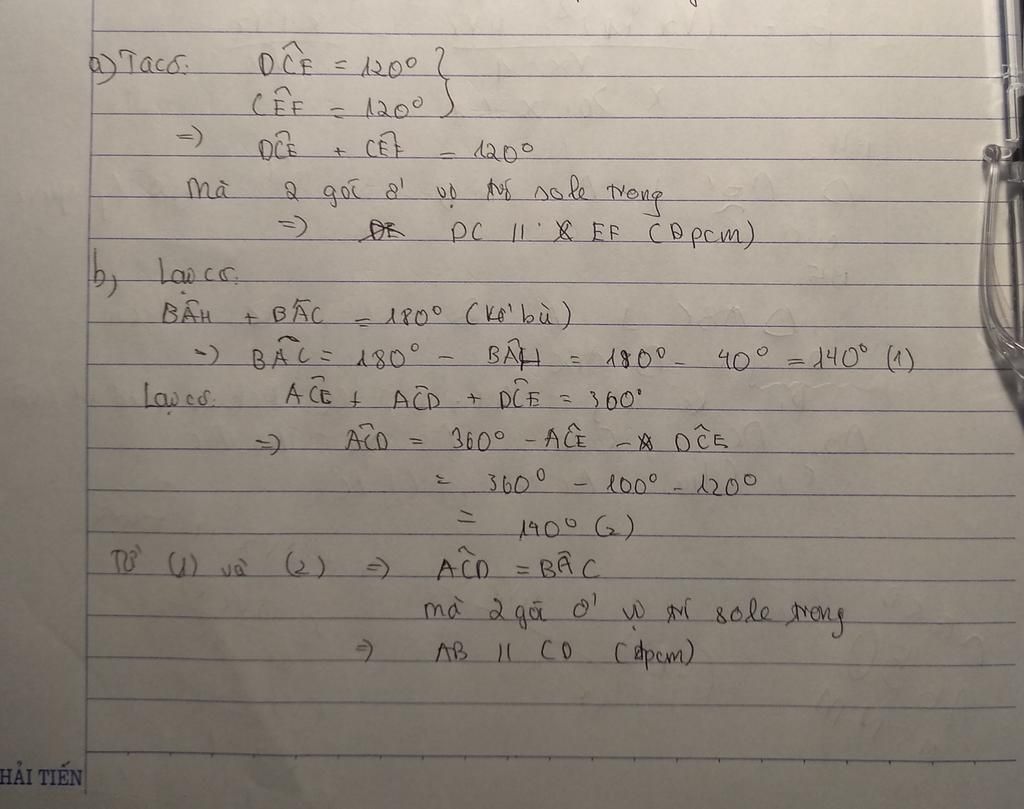 a) Ta có: DĈE = 120° }
CÊF = 120° }
=> DĈE + CÊF = 120°
Mà 2 góc ở vị trí sole trong
=> DC // EF (Đpcm)
b, Lại có:
BÂH + BÂC = 180° (kề bù)
=> BÂC = 180° - BÂH = 180° - 40° = 140° (1)
Lại có: AĈE + AĈD + DĈE = 360°
=> AĈD = 360° - AĈE - DĈE
= 360° - 100° - 120°
= 140° (2)
Từ (1) và (2) => AĈD = BÂC
mà 2 góc ở vị trí sole trong
=> AB // CD (đpcm)
HẢI TIẾN